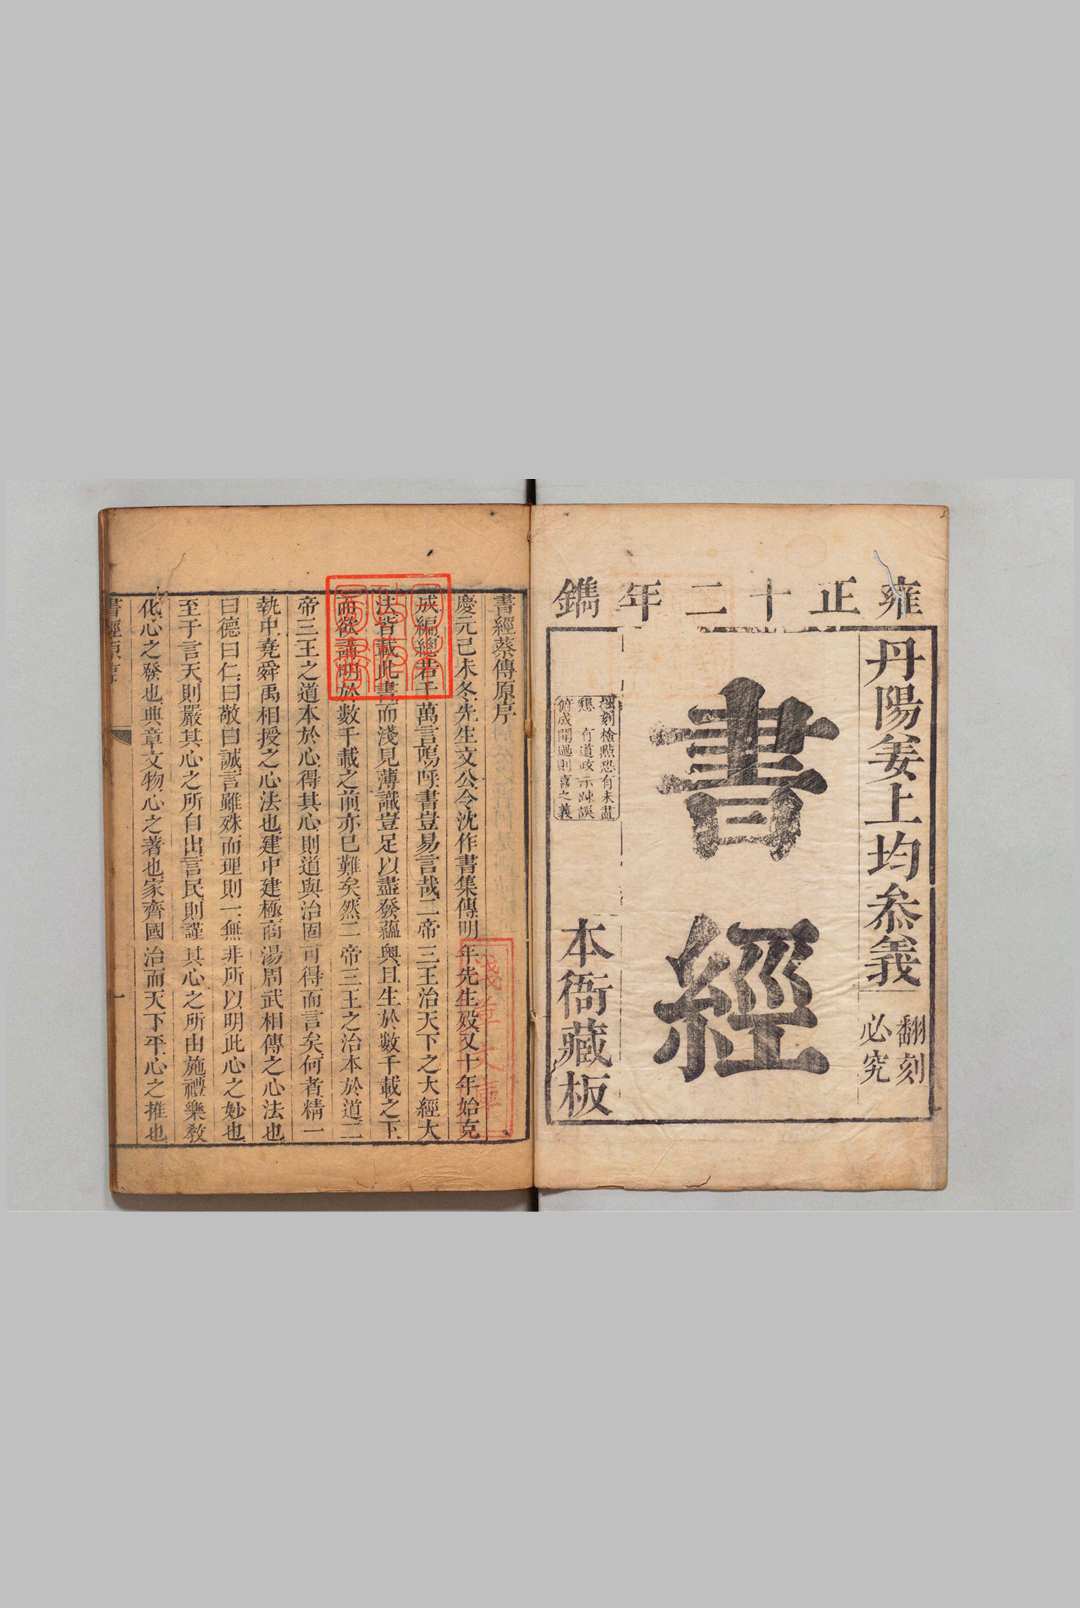 雍正十二年鐫
丹陽姜上均叅義
翻刻
必究
書經
恐有未盡
有道政示踈誤
聞過則喜之義
本衙藏板
書經蔡傳原序
慶元己未冬先生文公令沈作書集傳明年先生歿又十年始克
成編總若干萬言嗚呼書豈易言哉二帝三王治天下之大經大
法皆載此書而淺見薄識豈足以盡發蘊奧且生於數千載之下
而欲講明於數千載之前亦已難矣然二帝三王之治本於道二
帝三王之道本於心得其心則道與治固可得而言矣何者精一
執中堯舜禹相授之心法也建中建極商湯周武相傳之心法也
曰德曰仁曰敬曰誠言雖殊而理則一無非所以明此心之妙也
至于言天則嚴其心之所自出言民則謹其心之所由施禮樂教
化心之發也典章文物心之著也家齊國治而天下平心之推也